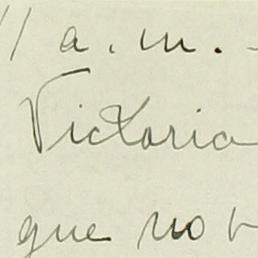 11 a.m. -
Victoria
que no